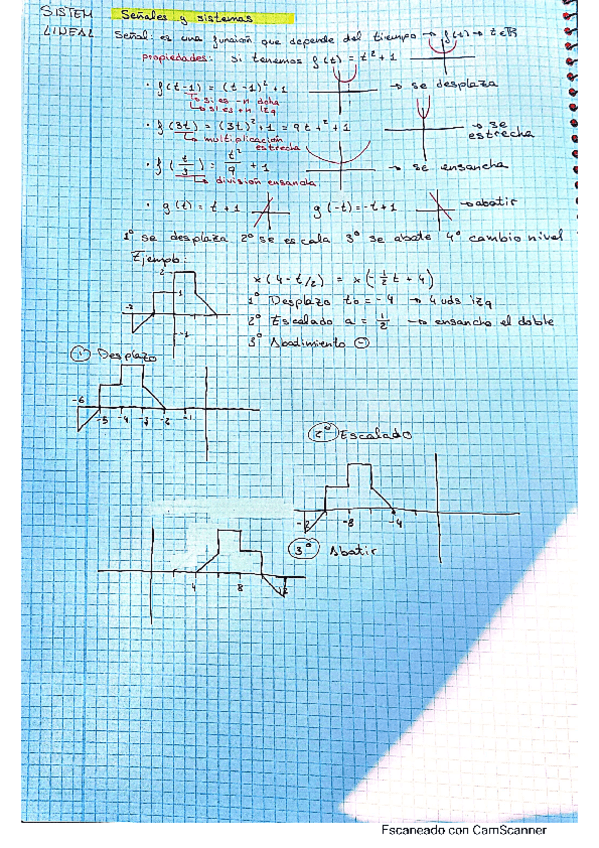 SISTEM Señales y sistemas
LINEAL Señal: es una función que depende del tiempo → f(t) → t∈ℝ
propiedades: si tenemos f(t) = t² + 1
· f(t-1) = (t-1)² + 1 → se desplaza
↳ si es -n dcha
↳ si es +n izq
· f(3t) = (3t)² + 1 = 9t² + 1 → se estrecha
↳ multiplicación estrecha
· f(t/3) = t²/9 + 1 → se ensancha
↳ división ensancha
· g(t) = t + 1 g(-t) = -t + 1 → abatir
1º se desplaza 2º se escala 3º se abate 4º cambio nivel
Ejemplo:
2
1
-2
-1
x(4 - t/2) = x(-1/2 t + 4)
1º Desplazo to = -4 → 4 uds izq
2º Escalado a = 1/2 → ensancho el doble
3º Abadimiento ⊖
1º Desplazo
-6 -5 -4 -3 -2 -1
2º Escalado
-8 -4
3º Abatir
4 8 12
Escaneado con CamScanner